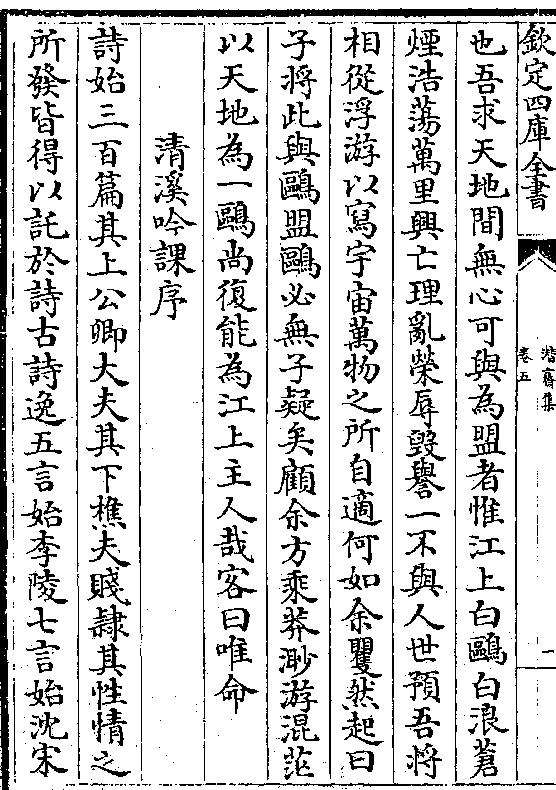 欽定四庫全書
卷五
也吾求天地間無心可與為盟者惟江上白鷗白浪蒼
煙浩蕩萬里興亡理亂榮辱毀譽一不與人世預吾將
相從浮游以寫宇宙萬物之所自適何如余瞿然起曰
子將此與鷗盟鷗必無子疑矣顧余方乘莽渺游混茫
以天地為一鷗尚復能為江上主人哉客曰唯命
清溪吟課序
詩始三百篇其上公卿大夫其下樵夫賤隸其性情之
所發皆得以託於詩古詩逸五言始李陵七言始沈宋